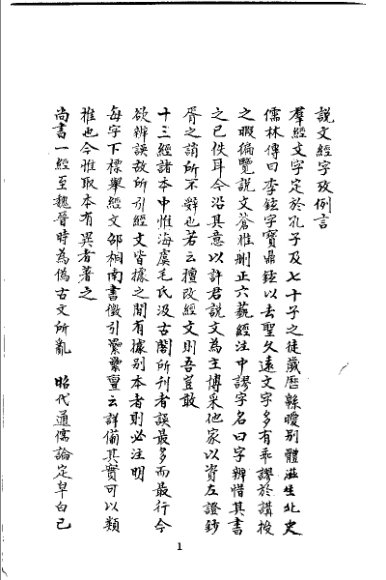 說文經字攷例言
羣經文字定於孔子及七十子之徒歲曆緜曖別體滋生北史
儒林傳曰李鉉字寶鼎鉉以去聖久遠文字多有乖謬於講授
之暇徧覽說文蒼雅刪正六藝經注中謬字名曰字辨惜其書
之已佚耳今沿其意以許君說文為主博采他家以資左證鈔
胥之誚所不辭也若云擅改經文則吾豈敢
十三經諸本中惟海虞毛氏汲古閣所刊者誤最多而最行今
欲辨誤故所引經文皆據之閒有據別本者則必注明
每字下標舉經文邵相南書徵引纍纍亶云詳備其實可以類
推也今惟取本有異者著之
尚書一經至魏晉時為偽古文所亂 昭代通儒論定早白已
1